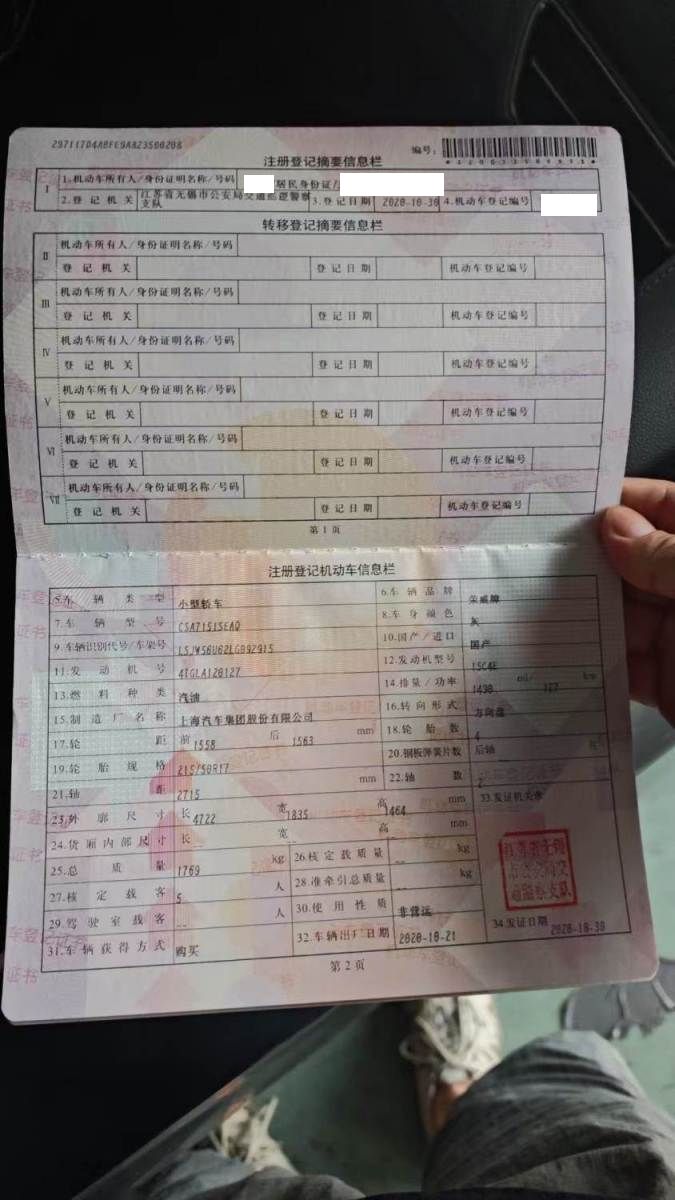 29711704A8FE9A823500208
编号:
注册登记摘要信息栏
I 1.机动车所有人/身份证明名称/号码 居民身份证/
2.登记机关 江苏省无锡市公安局交通巡逻警察支队 3.登记日期 2020-10-30 4.机动车登记编号
转移登记摘要信息栏
II 机动车所有人/身份证明名称/号码
登记机关 登记日期 机动车登记编号
III 机动车所有人/身份证明名称/号码
登记机关 登记日期 机动车登记编号
IV 机动车所有人/身份证明名称/号码
登记机关 登记日期 机动车登记编号
V 机动车所有人/身份证明名称/号码
登记机关 登记日期 机动车登记编号
VI 机动车所有人/身份证明名称/号码
登记机关 登记日期 机动车登记编号
VII 机动车所有人/身份证明名称/号码
登记机关 登记日期 机动车登记编号
第1页
注册登记机动车信息栏
5.车辆类型 小型轿车 6.车辆品牌 荣威牌
7.车辆型号 CSA7151SEAQ 8.车身颜色 灰
9.车辆识别代号/车架号 10.国产/进口 国产
11.发动机号 12.发动机型号 15C4E
13.燃料种类 汽油 14.排量/功率 1490 ml/ kw
15.制造厂名称 上海汽车集团股份有限公司 16.转向形式 方向盘
17.轮距 前 1558 后 1563 mm 18.轮胎数 4
19.轮胎规格 215/50R17 20.钢板弹簧片数 后轴
21.轴距 2715 mm 22.轴数 2
23.外廓尺寸 长 4722 宽 1835 高 1464 mm 33.发证机关章
24.货厢内部尺寸 长 宽 高 mm
25.总质量 1769 kg 26.核定载质量 -- kg
27.核定载客 5 人 28.准牵引总质量 -- kg
29.驾驶室载客 -- 人 30.使用性质 非营运
31.车辆获得方式 购买 32.车辆出厂日期 2020-10-21 34.发证日期 2020-10-30
第2页